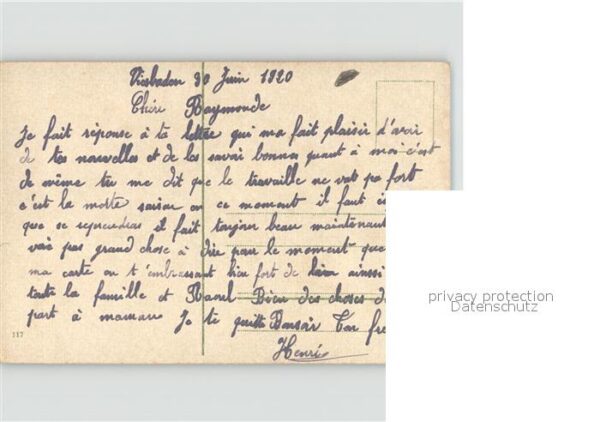 Viesbaden 30 Juin 1920
Chère Raymonde
Je fait réponse à ta lettre qui ma fait plaisir d'avoir
de tes nouvelles et de les savoir bonnes quant à moi c'est
de même tu me dit que le travaille ne vat pa fort
c'est la morte saison en ce moment il faut
que se reprendras il fait toujour beau maintenant
vois pas grand chose à dire pour le moment que
ma carte en t'embrassant bien fort de loin ainsi
toute la famille et Raoul Bien des choses de
part à maman Je te quitte Bonsoir Ton fre
Henri
117
privacy protection
Datenschutz